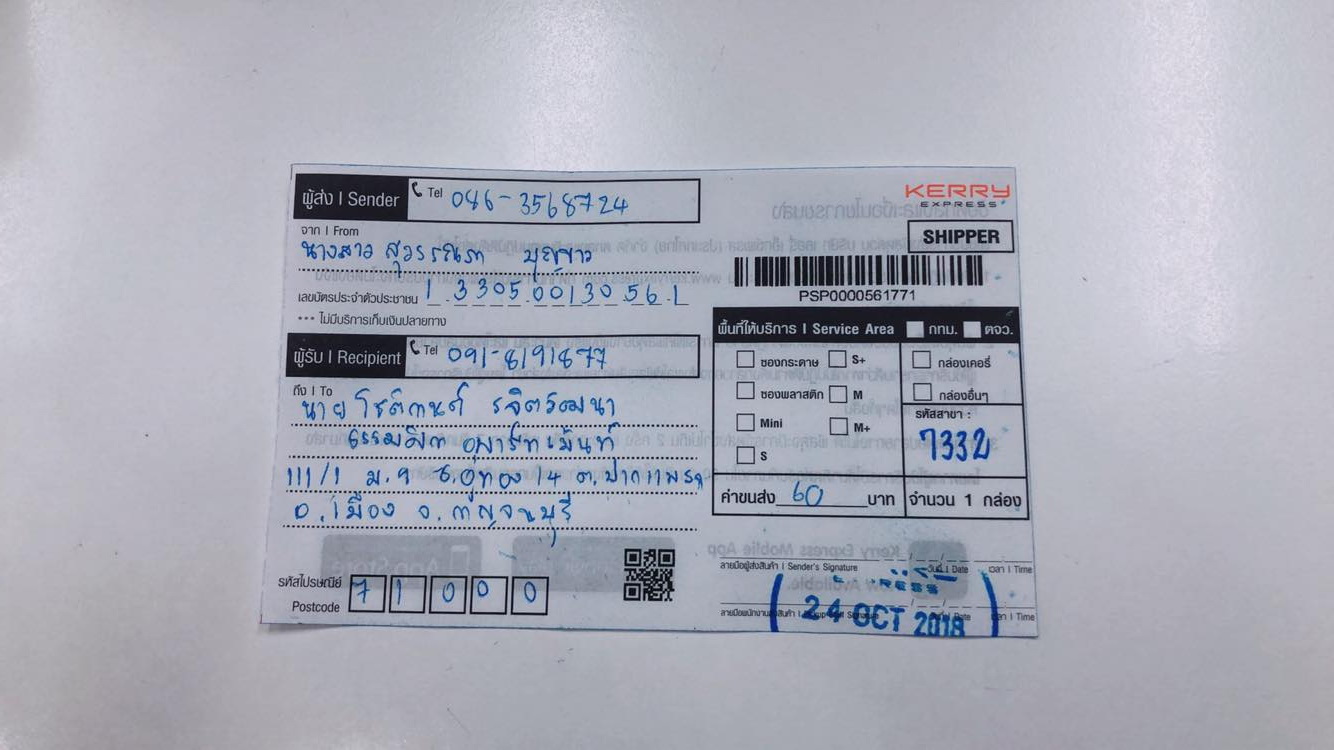 ผู้ส่ง I Sender
Tel 086-3568724
จาก I From
นางสาว สุวรรณิภา บุญขาว
เลขบัตรประจำตัวประชาชน 1 3305 00130 56 1
*** ไม่มีบริการเก็บเงินปลายทาง
ผู้รับ I Recipient
Tel 091-8191877
ถึง I To
นาย โชติกานต์ รจิตวัฒนา
ธรรมมิกา อพาร์ทเม้นท์
111/1 ม.9 ซ.อู่ทอง 14 ต.ปากแพรก
อ.เมือง จ.กาญจนบุรี
รหัสไปรษณีย์
Postcode
7 1 0 0 0
KERRY
EXPRESS
SHIPPER
PSP0000561771
พื้นที่ให้บริการ I Service Area กทม. ตจว.
ซองกระดาษ S+ กล่องเคอรี่
ซองพลาสติก M กล่องอื่นๆ
Mini M+
S
รหัสสาขา :
7332
ค่าขนส่ง 60 บาท
จำนวน 1 กล่อง
ลายมือผู้ส่งสินค้า I Sender's Signature วันที่ I Date เวลา I Time
24 OCT 2018